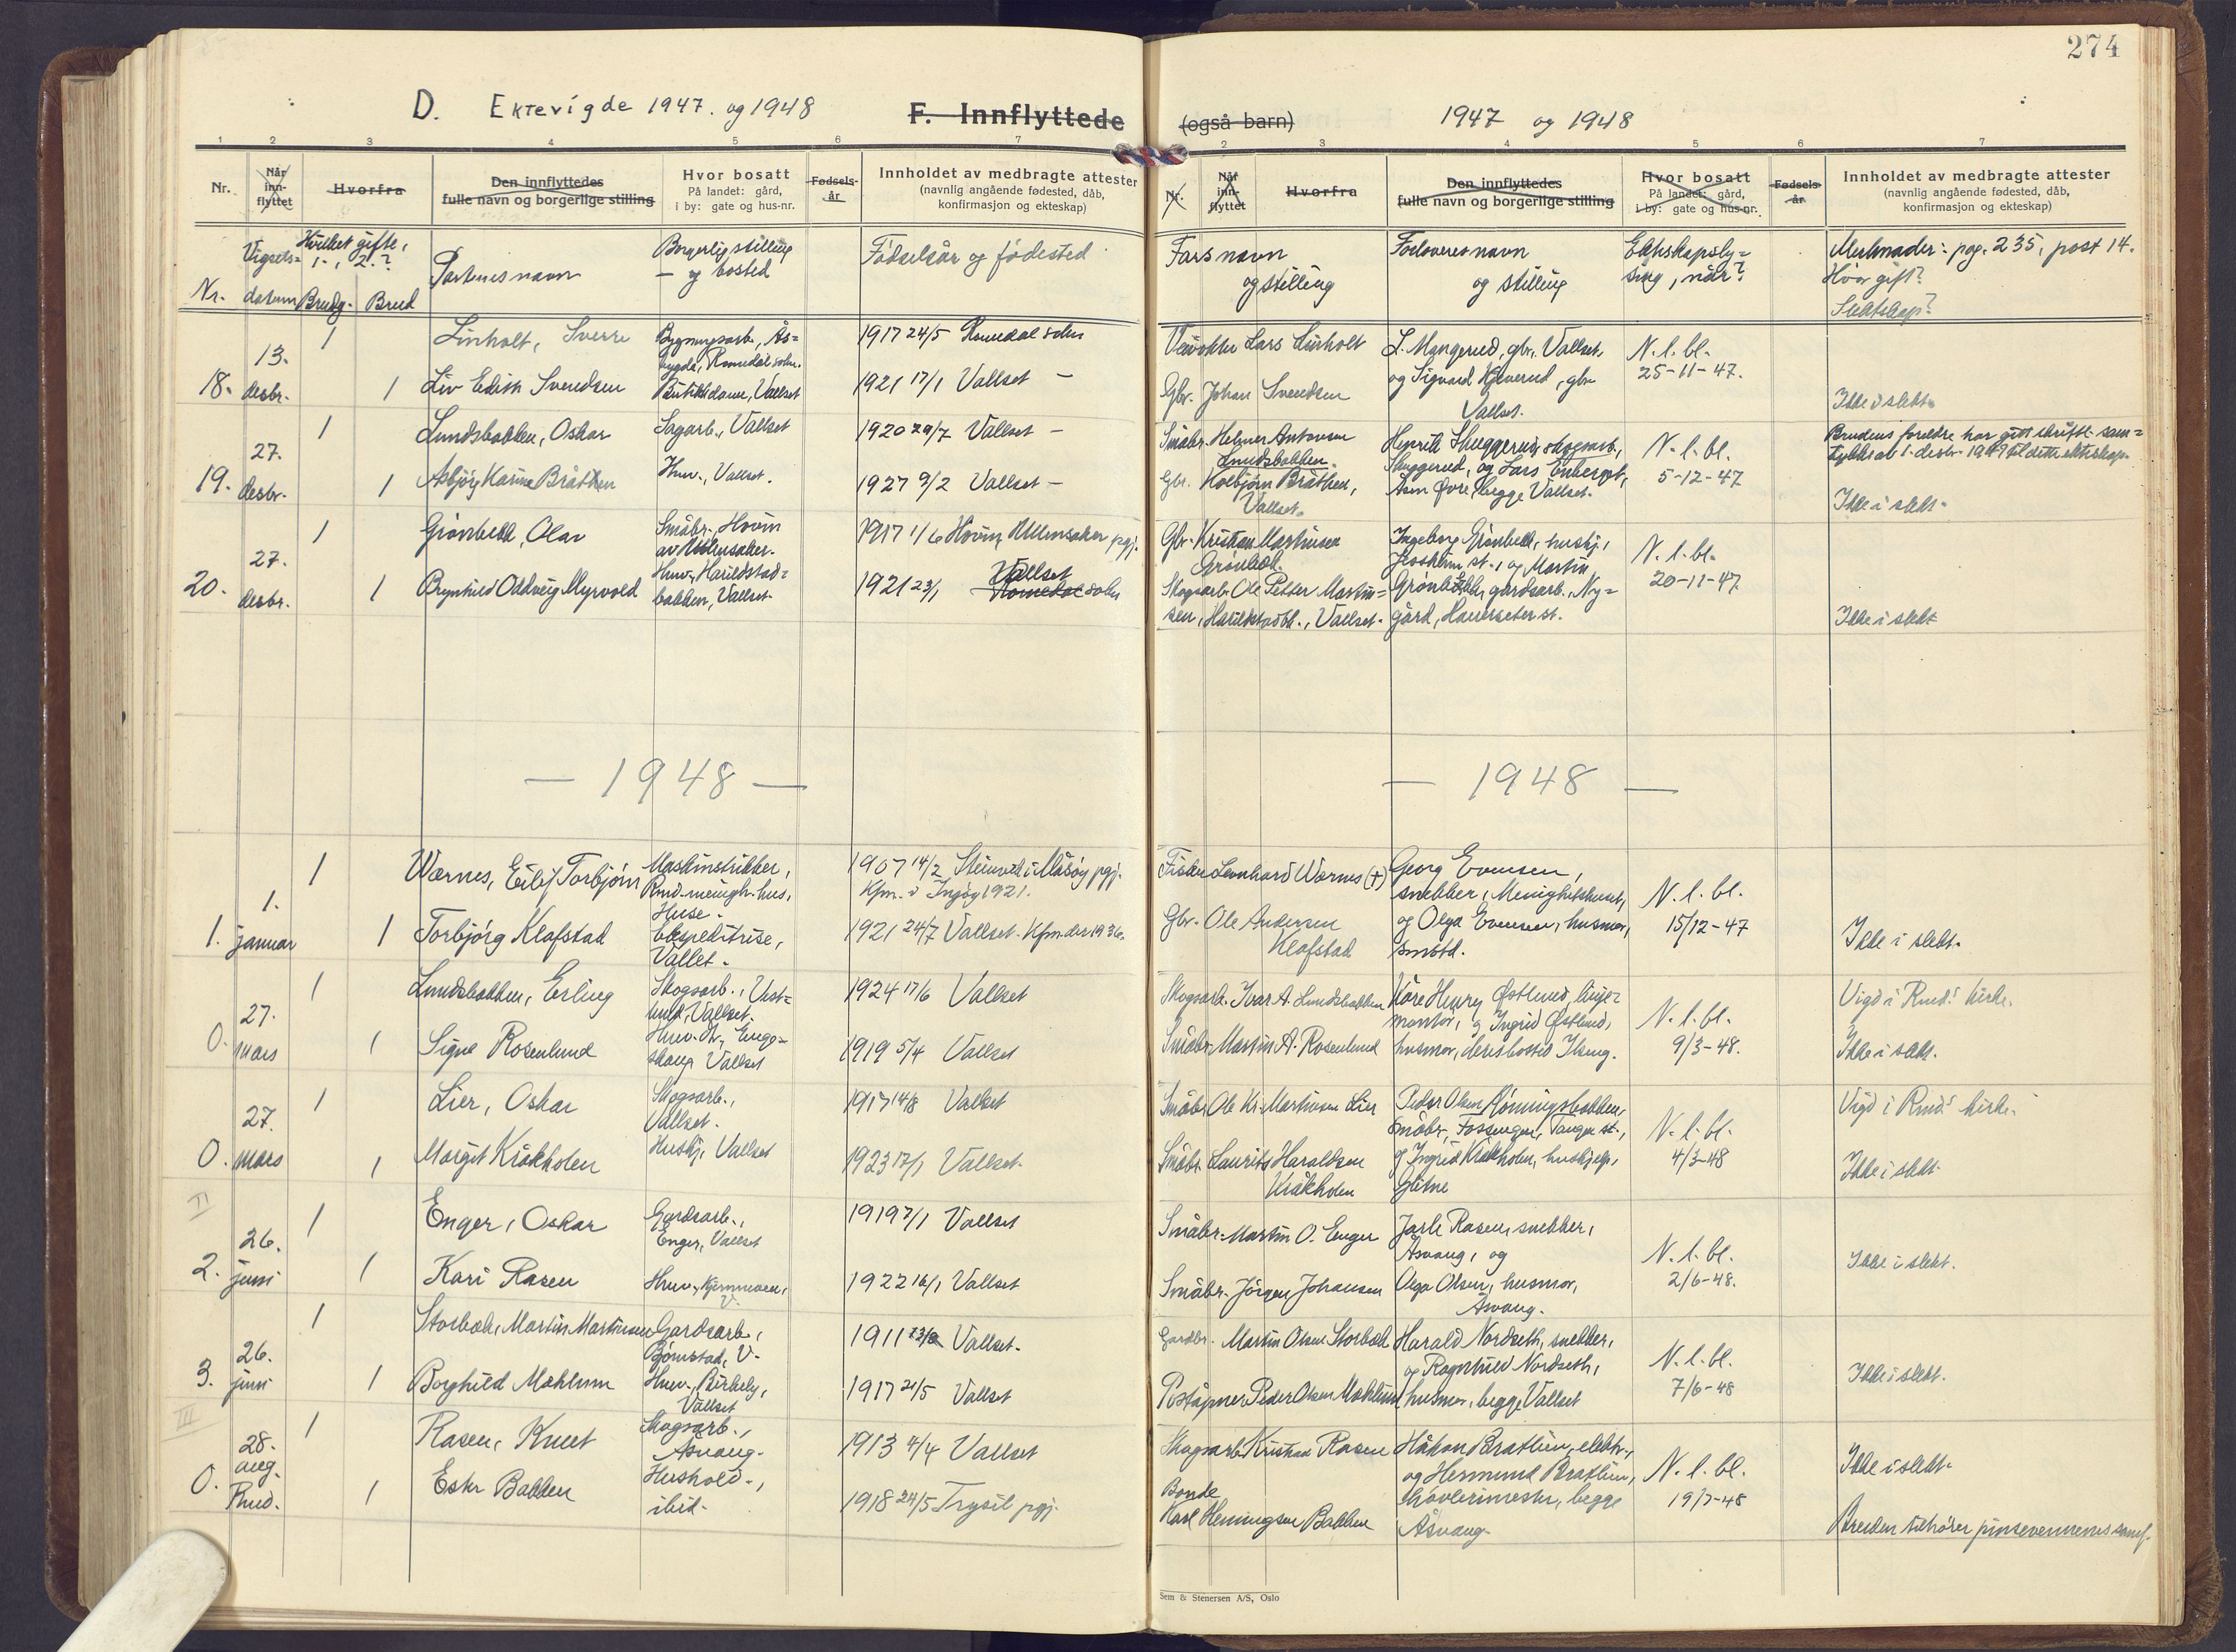 274
D. Ektevigde 1947. og 1948
F. Innflyttede
(også barn)
1947 og 1948
1 2 3 4 5 6 7
2 3 4 5 6 7
Nr.
Når inn-flyttet
Hvorfra
Den innflyttedes
fulle navn og borgerlige stilling
Hvor bosatt
På landet: gård,
i by: gate og hus-nr.
Fødsels-
år
Innholdet av medbragte attester
(navnlig angående fødested, dåb,
konfirmasjon og ekteskap)
Nr.
Når inn-flyttet
Hvorfra
Den innflyttedes
fulle navn og borgerlige stilling
Hvor bosatt
På landet: gård,
i by: gate og hus-nr.
Fødsels-
år
Innholdet av medbragte attester
(navnlig angående fødested, dåb,
konfirmasjon og ekteskap)
Nr.
Vigsels-
datum
Hvilket gifte,
1., 2.?
Brudg. Brud
Partenes navn
Borgerlig stilling
— og bosted
Fødselsår og fødested
Fars navn
og stilling
Forloveres navn
og stilling
Ekteskapsly=
sing, når?
Merknader: pag. 235, post 14.
Hvor gift?
Slektskap?
18. 13. desbr.
1 Linholt, Sverre
Bygningsarb., Ås=
bygda, Romedal sokn.
1917 24/5 Romedal sokn
Lars Linholt
L. Mangerud, gbr. Vallset,
N. l. bl.
25-11-47.
1 Liv Edith Svendsen
Butikkdame, Vallset
1921 17/1 Vallset —
Gbr. Johan Svendsen
og Sigvard Kjeverud, gbr.
Vallset.
Ikke i slekt.
19. 27. desbr.
1 Lundsbakken, Oskar
Sagarb., Vallset
1920 29/7 Vallset —
Småbr. Helmer Antonsen
Lundsbakken.
Henrik Skuggerud, skogsarb.,
Skuggerud, og Lars Enberget,
Åsen Øvre, begge Vallset.
N. l. bl.
5-12-47
Brudens foreldre har gitt skriftl. sam=
tykke av 1. desbr. 1947 til dette ekteskap.
1 Asbjørg Karine Bråthen
Husv., Vallset.
1927 9/2 Vallset —
Gbr. Kolbjørn Bråthen,
Vallset.
Ikke i slekt.
20. 27. desbr.
1 Grønbekk, Olav
Småbr., Hovin
av Ullensaker.
1917 1/6 Hovin, Ullensaker pgj.
Gbr. Kristian Martinsen
Grønbekk.
Ingeborg Grønbekk, hushj.,
Jessheim st., og Martin
Grønbekk, gårdsarb., Ny=
gård, Hauerseter st.
N. l. bl.
20-11-47.
1 Brynhild Oddveig Myrvold
Husv., Harildstad=
bakken, Vallset.
1921 23/1 Vallset
Romedal sokn
Skogsarb. Ole Petter Martin=
sen, Harildstadbk., Vallset.
Ikke i slekt
— 1948 —
— 1948 —
1. 1. januar
1 Wærnes, Eilif Torbjørn
Maskinstrikker,
Rmd. menigh. hus,
Huse.
1907 14/2 Steinvik i Måsøy pgj.
Kfm. i Ingøy 1921.
Fisker Leonhard Wærnes (†)
Georg Evensen,
snekker, Menighetshuset,
og Olga Evensen, husmor,
smstd.
N. l. bl.
15/12-47
1 Torbjørg Klafstad
Ekspeditrise,
Vallset.
1921 24/7 Vallset. Kfm. der 1936.
Gbr. Ole Andersen
Klafstad
Ikke i slekt.
0. 27. mars
1 Lundsbakken, Erling
Skogsarb.,
Vallset.
1924 17/6 Vallset
Skogsarb. Ivar A. Lundsbakken
Kåre Henry Østlund, linje=
montør, og Ingrid Østlund,
husmor, deres bosted Ilseng.
N. l. bl.
9/3-48.
Vigd i Rmd. kirke.
1 Signe Rosenlund
Vallset
1919 5/4 Vallset
Småbr. Martin A. Rosenlund
Ikke i slekt.
0. 27. mars
1 Lier, Oskar
Skogsarb.,
Vallset.
1917 14/8 Vallset
Småbr. Ole Kr. Martinsen Lier
Peder Olsen Rønningsbakken,
småbr., Fossenger, Tangen st.,
og Ingrid Kråkholen, hushjelp,
N. l. bl.
4/3-48
Vigd i Rmd. kirke.
1 Margit Kråkholen
Hushj., Vallset
1923 17/1 Vallset.
Småbr. Laurits Haraldsen
Kråkholen
Ikke i slekt.
II
2. 26. juni
1 Enger, Oskar
Gardsarb.,
Enger, Vallset
1919 7/1 Vallset
Småbr. Martin O. Enger
Jarle Rasen, snekker,
Åsvang, og
Olga Olsen, husmor,
Åsvang.
N. l. bl.
2/6-48.
Ikke i slekt.
1 Kari Rasen
Husv., Kjernmoen,
V.
1922 16/1 Vallset
Småbr. Jørgen Johansen
3. 26. juni
1 Storbæk, Martin Martinsen
Gardsarb.,
Bjørnstad, V.
1911 23/8 Vallset.
Gardbr. Martin Olsen Storbæk
Harald Nordseth, snekker,
og Ragnhild Nordseth,
husmor, begge Vallset
N. l. bl.
7/6-48
Ikke i slekt.
1 Borghild Mæhlum
Husv., Birkely,
Vallset
1917 21/5 Vallset
Poståpner Peder Olsen Mæhlum
III
0. 28. aug. Rmd.
1 Rasen, Knut
Skogsarb.,
Åsvang.
1913 4/4 Vallset
Skogsarb. Kristian Rasen
Håkon Bratlien, elektr.,
og Hermund Bratlien,
høvlerimester, begge
Åsvang.
N. l. bl.
19/7-48
Ikke i slekt.
1 Ester Bakken
Hushold.,
ibid.
1918 24/5 Trysil pgj.
Bonde
Karl Hemingsen Bakken
Bruden tilhører pinsevennenes samf.
Sem & Stenersen A/S, Oslo